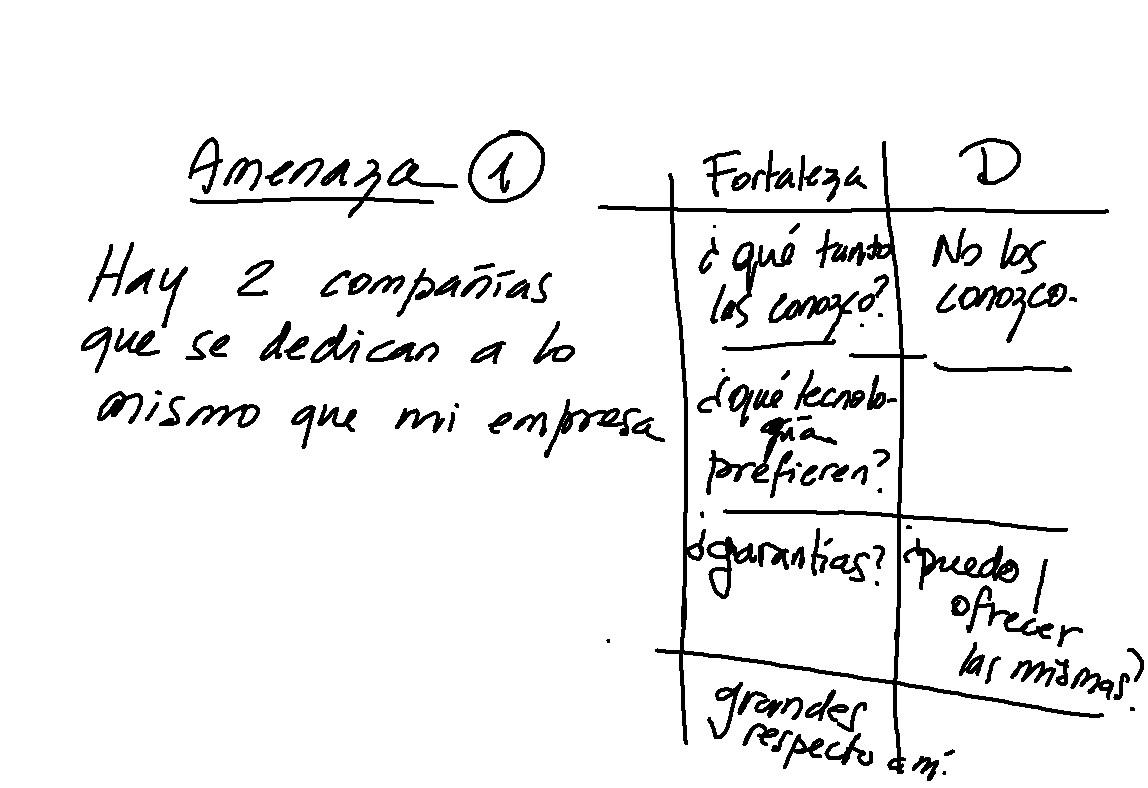 Amenaza 1
Hay 2 compañías
que se dedican a lo
mismo que mi empresa
Fortaleza
D
¿qué tanto
los conozco?
No los
conozco.
¿qué tecnolo-
gía
prefieren?
¿garantías?
¿puedo
ofrecer
las mismas?
grandes
respecto a mí